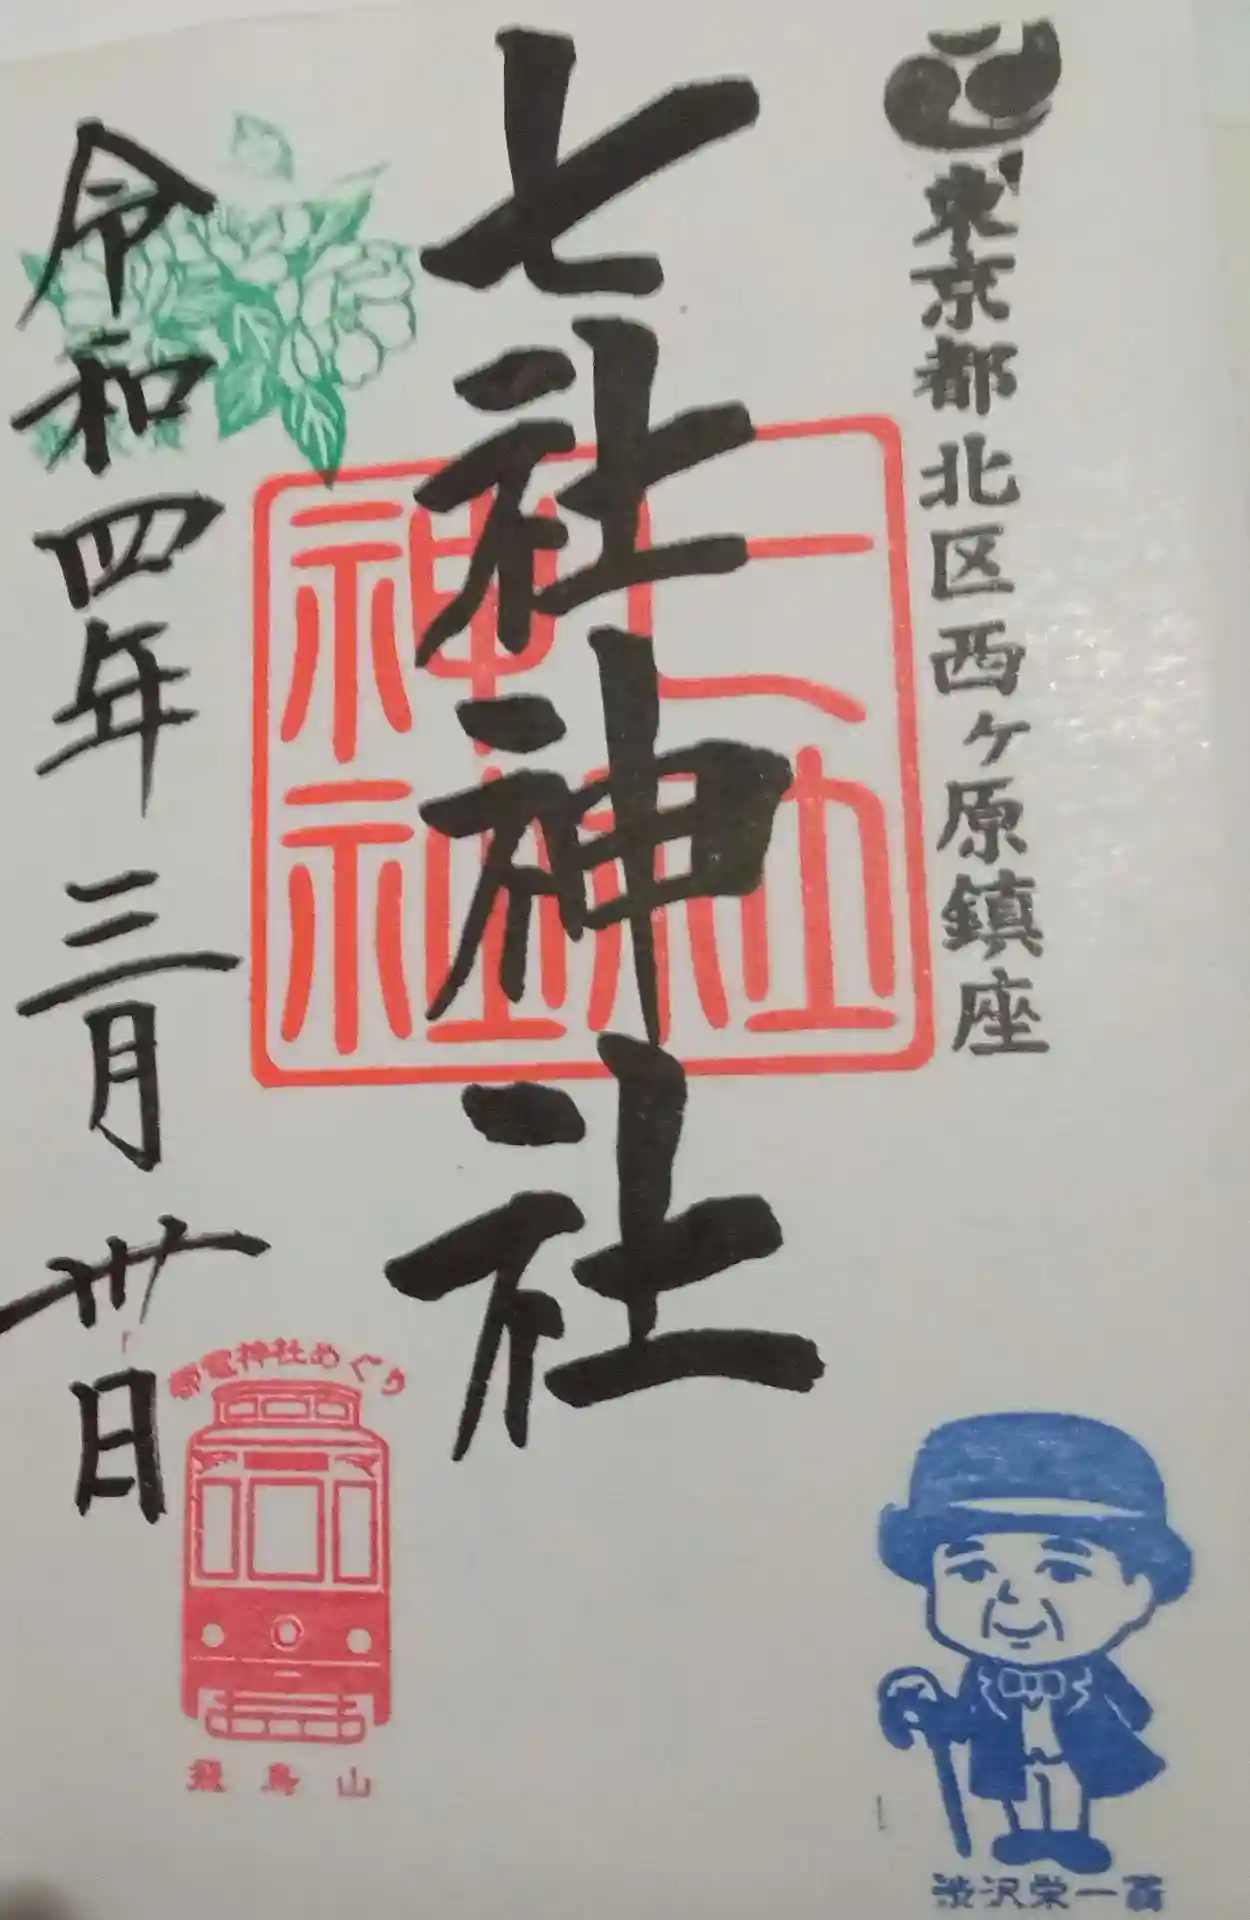 東京都北区西ヶ原鎮座
七社神社
七社
神社
令和四年三月卅日
都電神社めぐり
飛鳥山
渋沢栄一翁